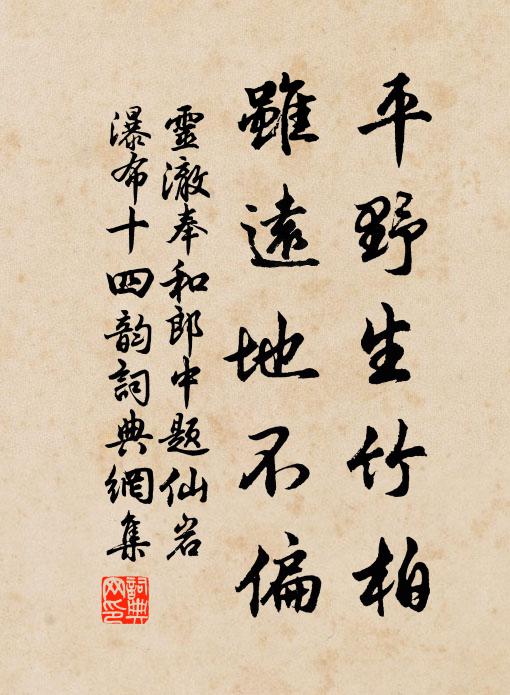 平野生竹柏
雖遠地不偏
靈澈奉和郎中題仙岩
瀑布十四韵詞典網集
詞典网印